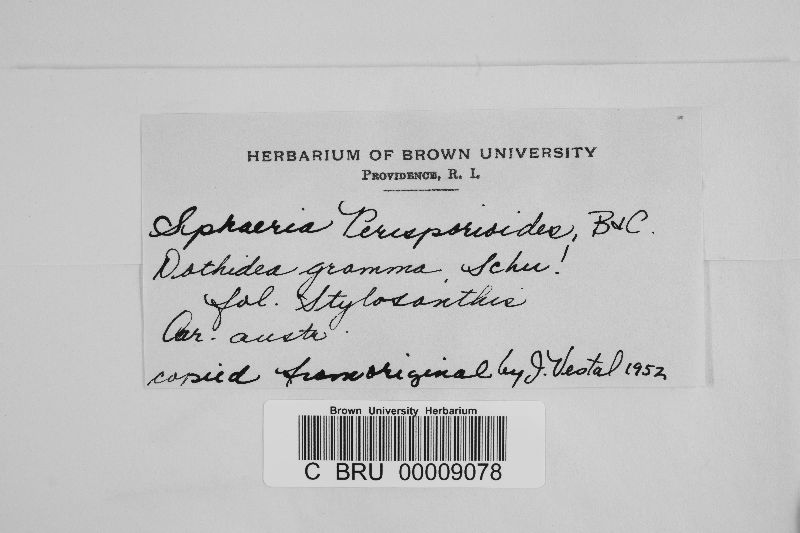 HERBARIUM OF BROWN UNIVERSITY
PROVIDENCE, R. I.
Sphaeria Perisporioides, B&C.
Dothidea gramma, Schw!
fol. Stylosanthis
Car. austr.
copied from original by J. Vestal 1952
Brown University Herbarium
C BRU 00009078